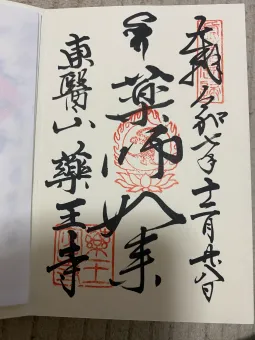 奉拝 令和七年十二月廿八日
薬師如来
東醫山 薬王寺